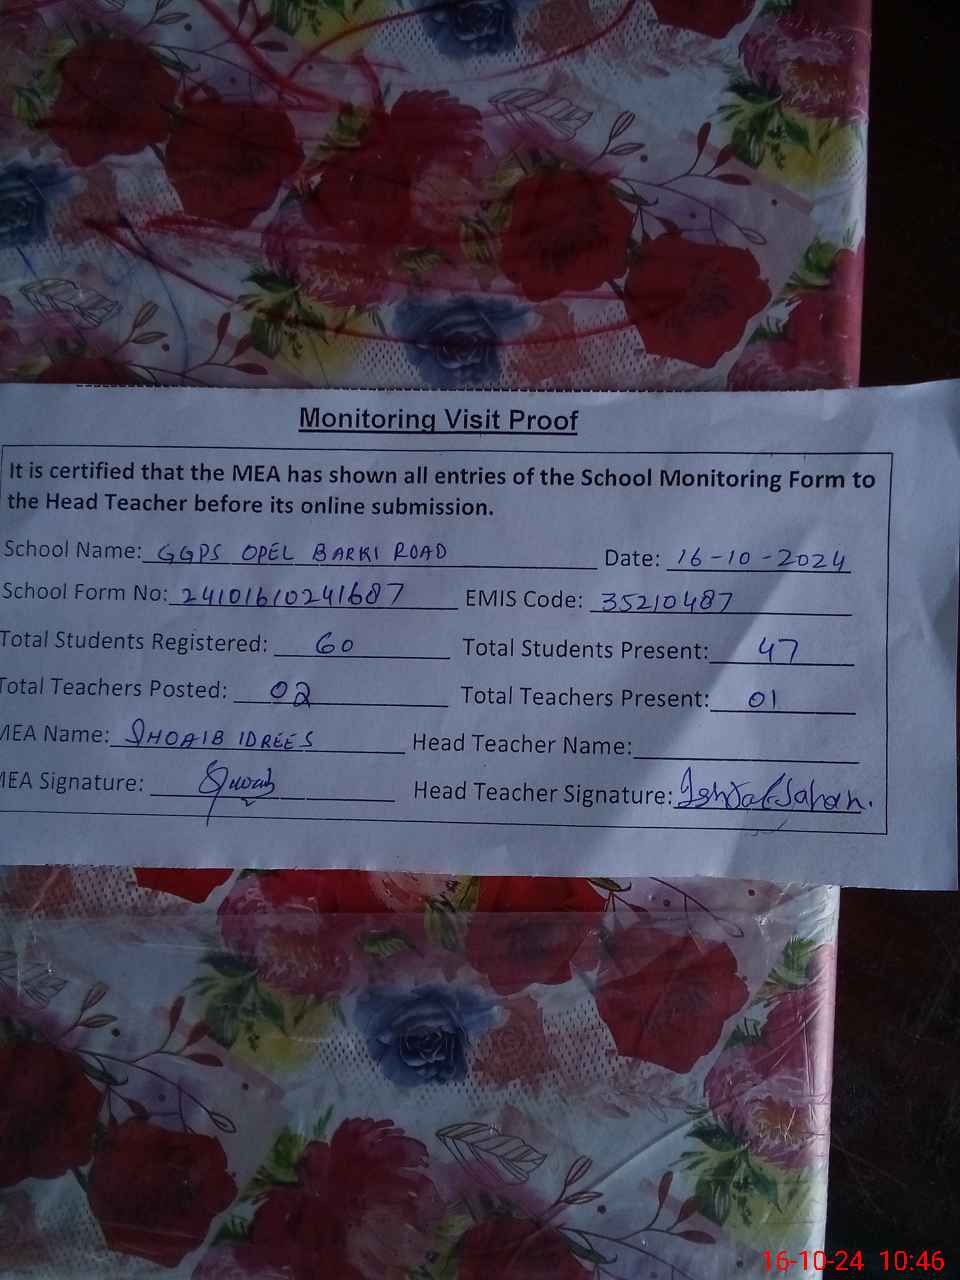 Monitoring Visit Proof
It is certified that the MEA has shown all entries of the School Monitoring Form to
the Head Teacher before its online submission.
School Name: GGPS OPEL BARKI ROAD Date: 16-10-2024
School Form No: 24101610241687 EMIS Code: 35210487
Total Students Registered: 60 Total Students Present: 47
Total Teachers Posted: 02 Total Teachers Present: 01
MEA Name: SHOAIB IDREES Head Teacher Name:
MEA Signature: Head Teacher Signature:
16-10-24 10:46